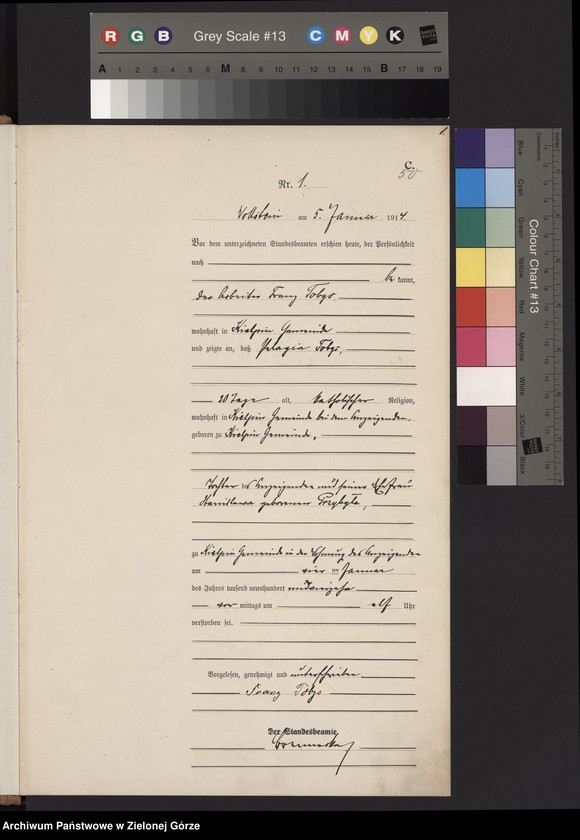 R G B Grey Scale #13 C M Y K
A 1 2 3 4 5 6 M 8 9 10 11 12 13 14 15 B 17 18 19
1.
C.
50
Nr. 1.
Wollstein am 5. Januar 1914.
Vor dem unterzeichneten Standesbeamten erschien heute, der Persönlichkeit
nach
be kannt,
der Arbeiter Franz Tobys
wohnhaft in Kielpin Gemeinde
und zeigte an, daß Pelagia Tobys,
20 Tage alt, katholischer Religion,
wohnhaft in Kielpin Gemeinde bei dem Anzeigenden,
geboren zu Kielpin Gemeinde,
Tochter des Anzeigenden und seiner Ehefrau
Stanislawa geborenen Przybyla,
zu Kielpin Gemeinde in der Wohnung des Anzeigenden
am vier ten Januar
des Jahres tausend neunhundert und vierzehn
vor mittags um elf Uhr
verstorben sei.
Vorgelesen, genehmigt und unterschrieben
Franz Tobys
Der Standesbeamte.
Colour Chart #13
Blue
Cyan
Green
Yellow
Red
Magenta
White
3/Color
Black
Centimetres
Inches
Archiwum Państwowe w Zielonej Górze